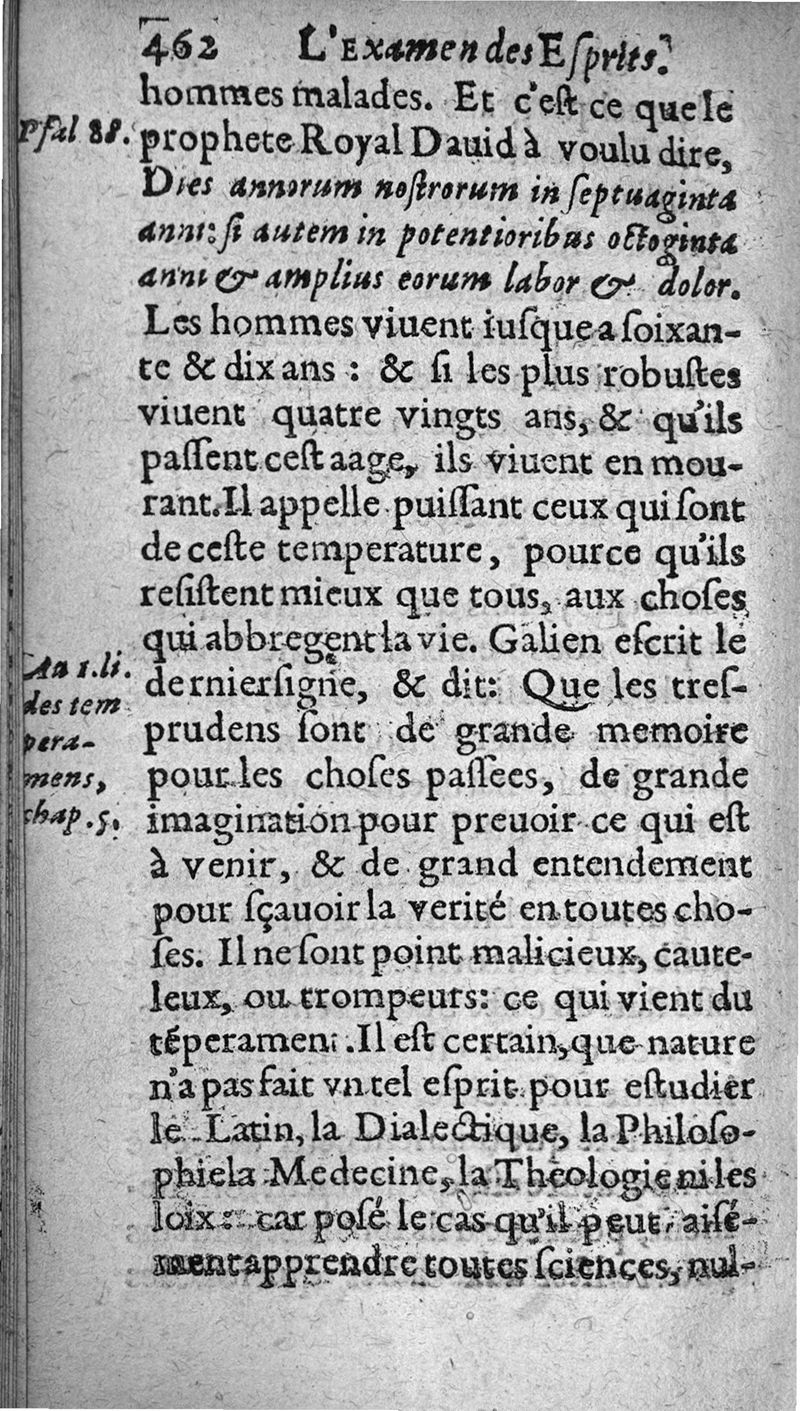 462 L'Examen des Esprits.
hommes malades. Et c'est ce que le
Psal 88. prophete Royal Dauid à voulu dire,
Dies annorum nostrorum in septuaginta
anni: si autem in potentioribus octoginta
anni & amplius eorum labor & dolor.
Les hommes viuent iusque a soixan-
te & dix ans : & si les plus robustes
viuent quatre vingts ans, & qu'ils
passent cest aage, ils viuent en mou-
rant. Il appelle puissant ceux qui sont
de ceste temperature, pource qu'ils
resistent mieux que tous, aux choses
qui abbregent la vie. Galien escrit le
Au 1. li. dernier signe, & dit: Que les tres-
des tem prudens sont de grande memoire
pera- pour les choses passées, de grande
mens, imagination pour preuoir ce qui est
chap. 5. à venir, & de grand entendement
pour sçauoir la verité en toutes cho-
ses. Il ne sont point malicieux, caute-
leux, ou trompeurs: ce qui vient du
téperament. Il est certain, que nature
n'a pas fait vn tel esprit pour estudier
le Latin, la Dialectique, la Philoso-
phie la Medecine, la Theologie ni les
loix: car posé le cas qu'il peut aisé-
ment apprendre toutes sciences, nul-